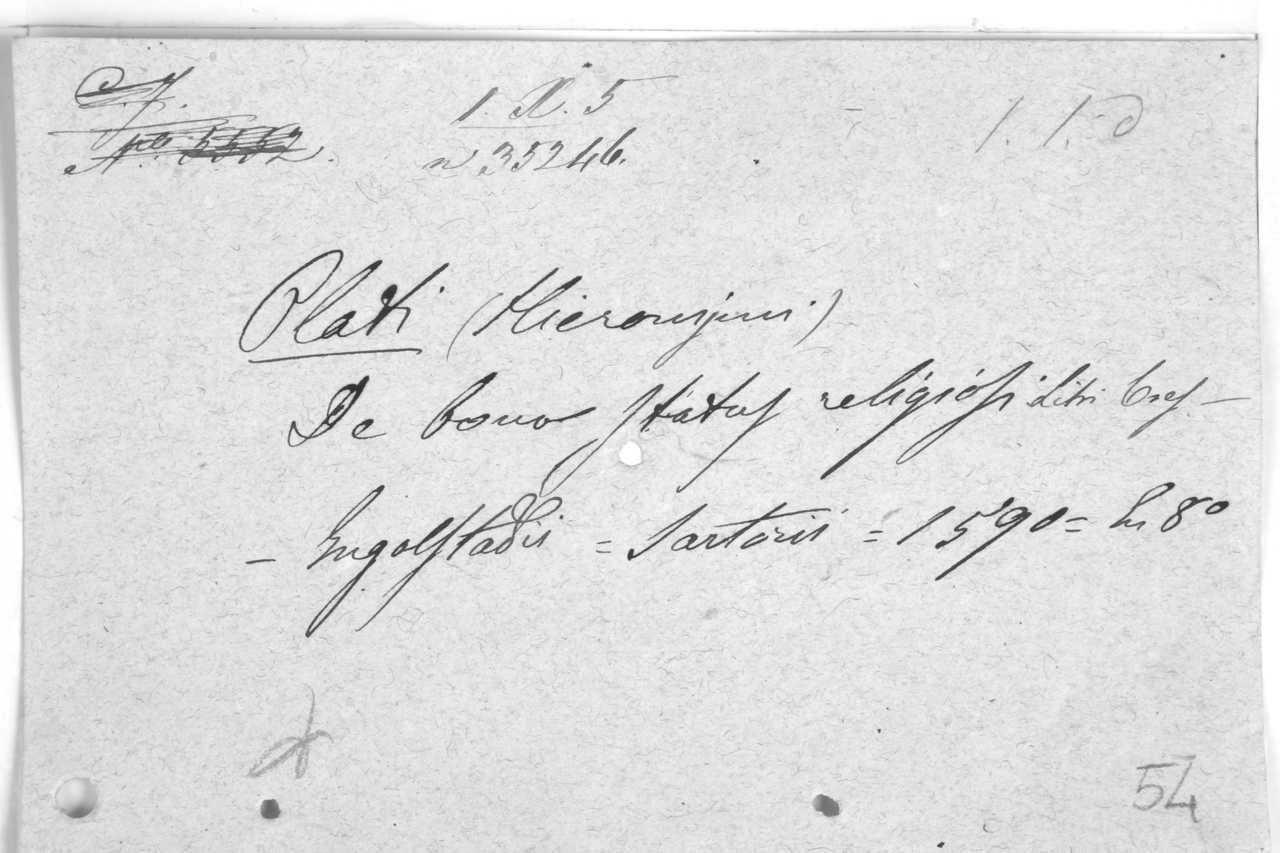 1. X. 5
n 35246.
1. 1. d
Plati (Hieronymi)
De bono Status religiosi Libri tres —
— Ingolstadii = Sartorii = 1590 = In 8º
54